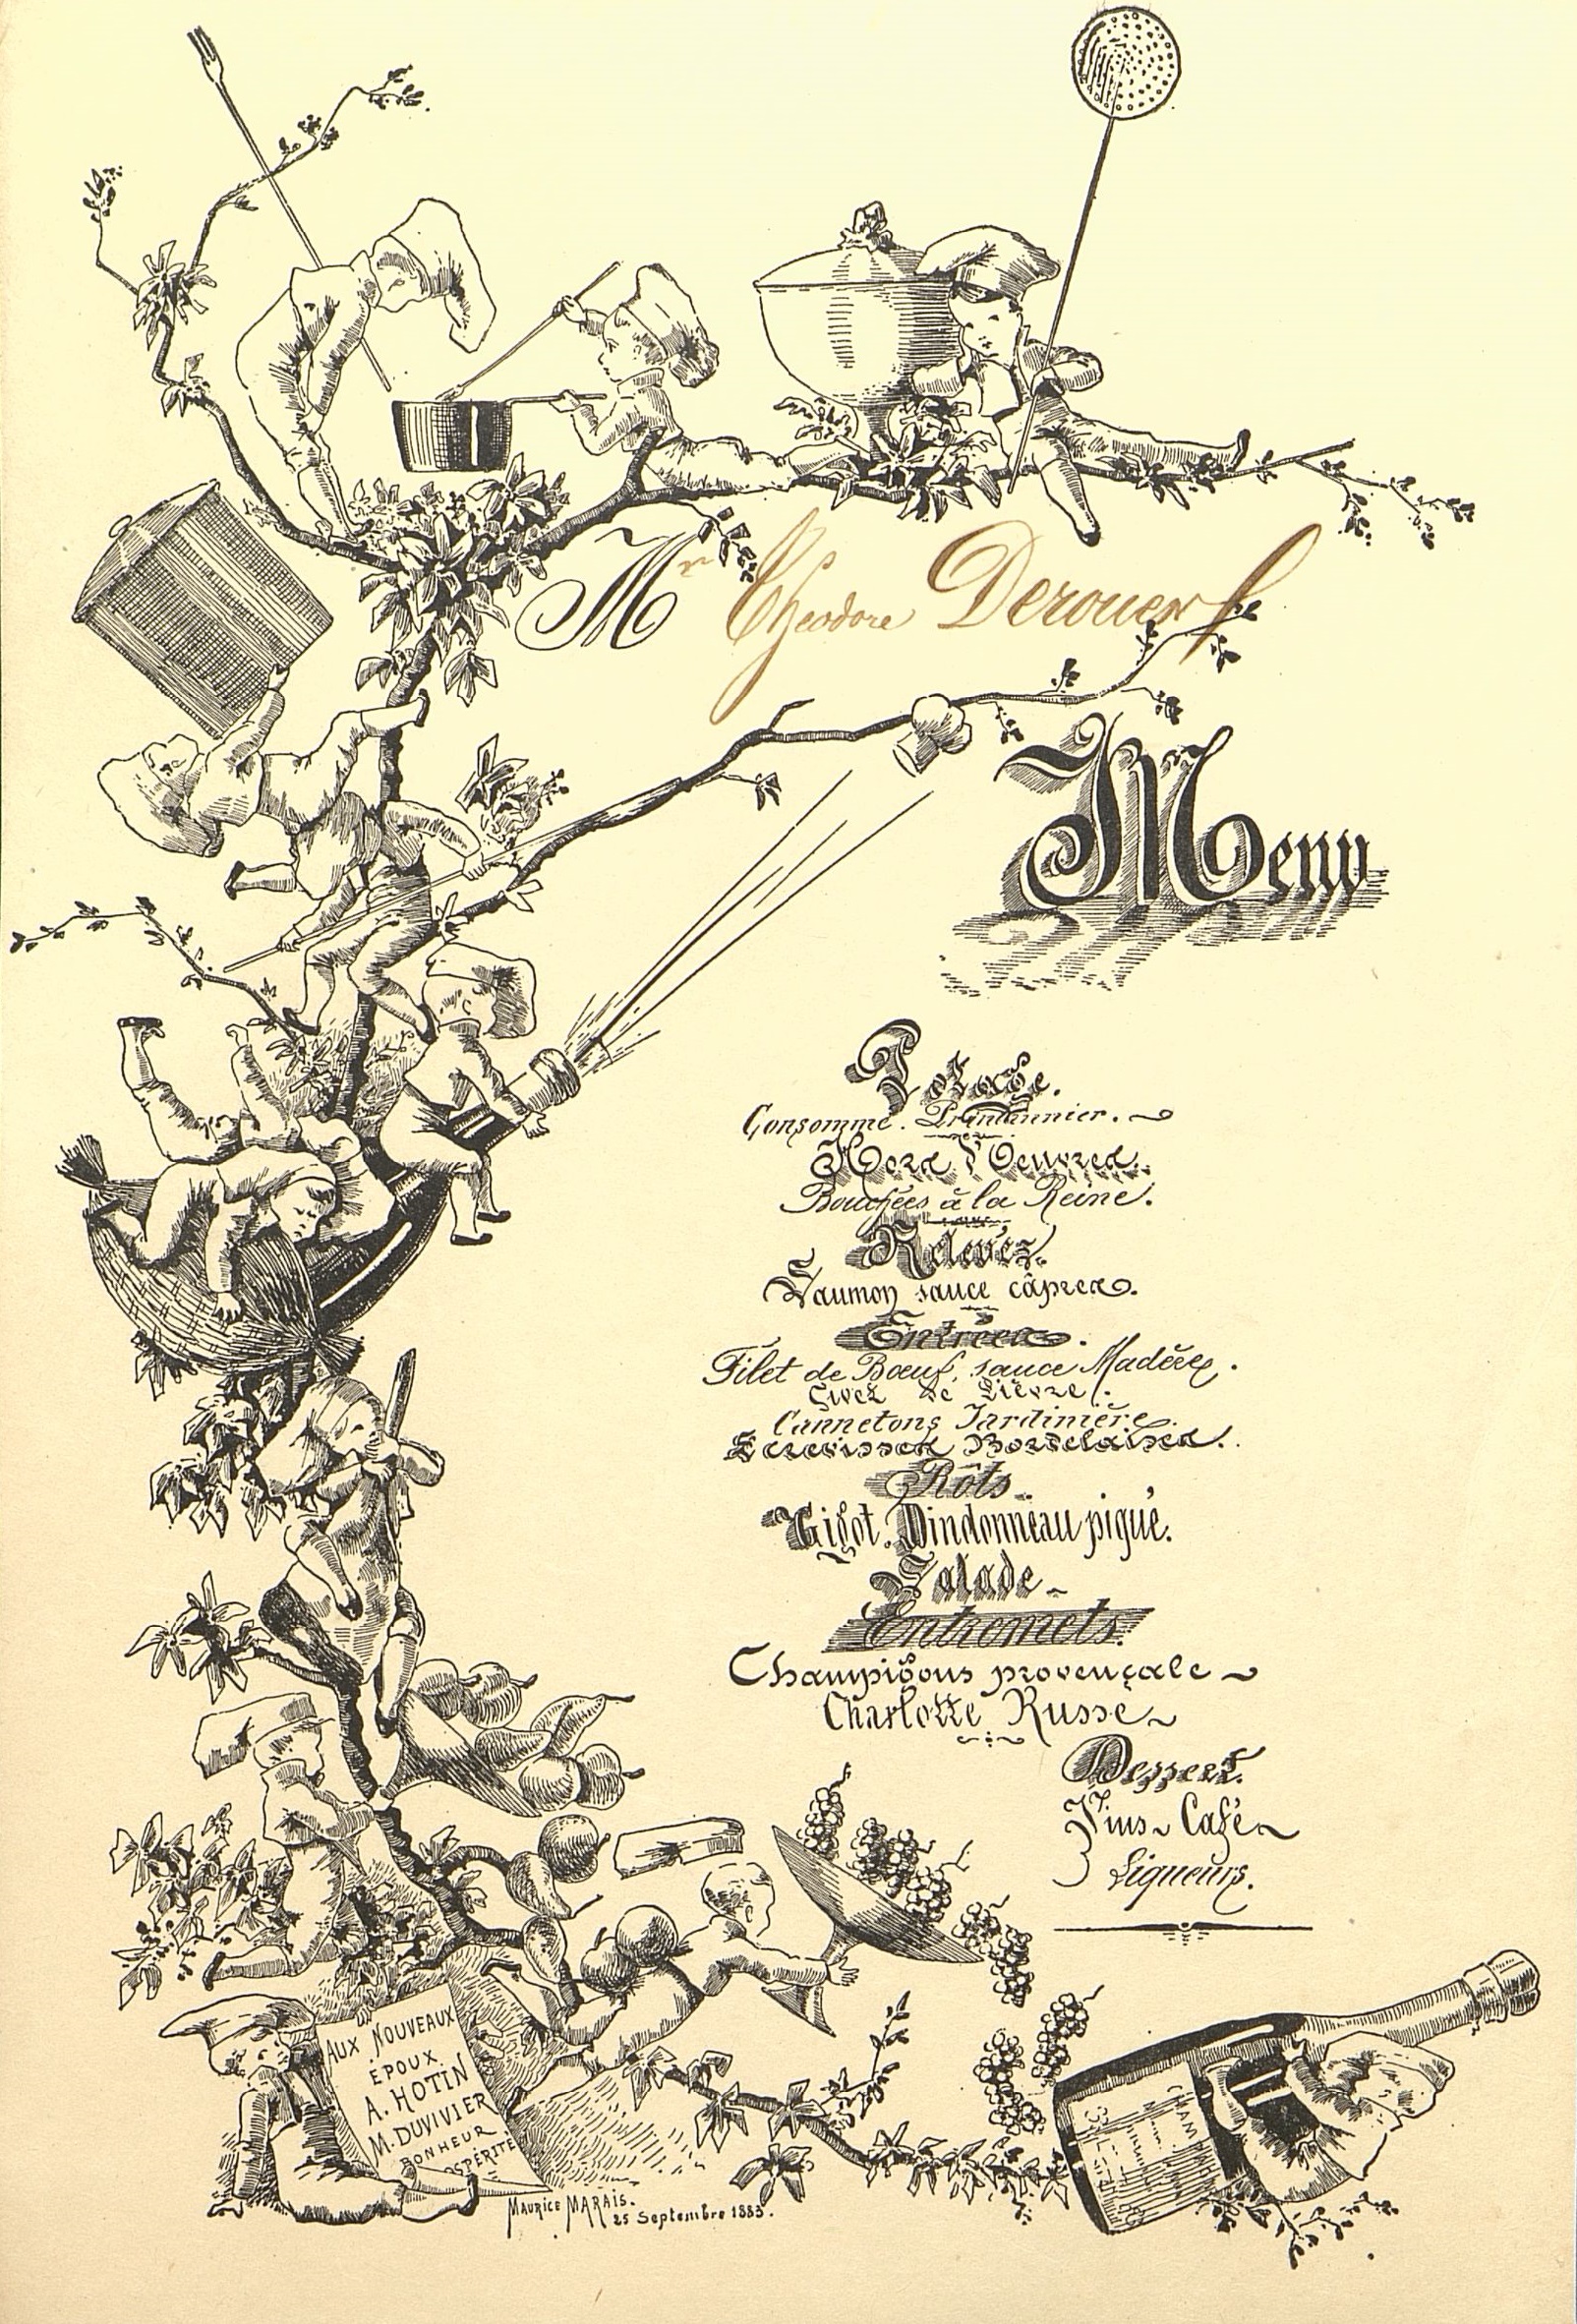 Mr Theodore Derouen
Menu
Potage.
Consommé. Printannier.
Hors d'Oeuvres.
Bouchées à la Reine.
Relevés.
Saumon sauce câpres.
Entrées.
Filet de Bœuf, sauce Madère.
Civet de Lièvre.
Cannetons Jardinière.
Ecrevisses Bordelaises.
Rôts.
Gigot. Dindonneau piqué.
Salade
Entremets.
Champigons provençale
Charlotte Russe
Dessert.
Vins Café
Liqueurs.
AUX NOUVEAUX
ÉPOUX
A. HOTIN
M. DUVIVIER
BONHEUR
MAURICE MARAIS.
25 Septembre 1883.